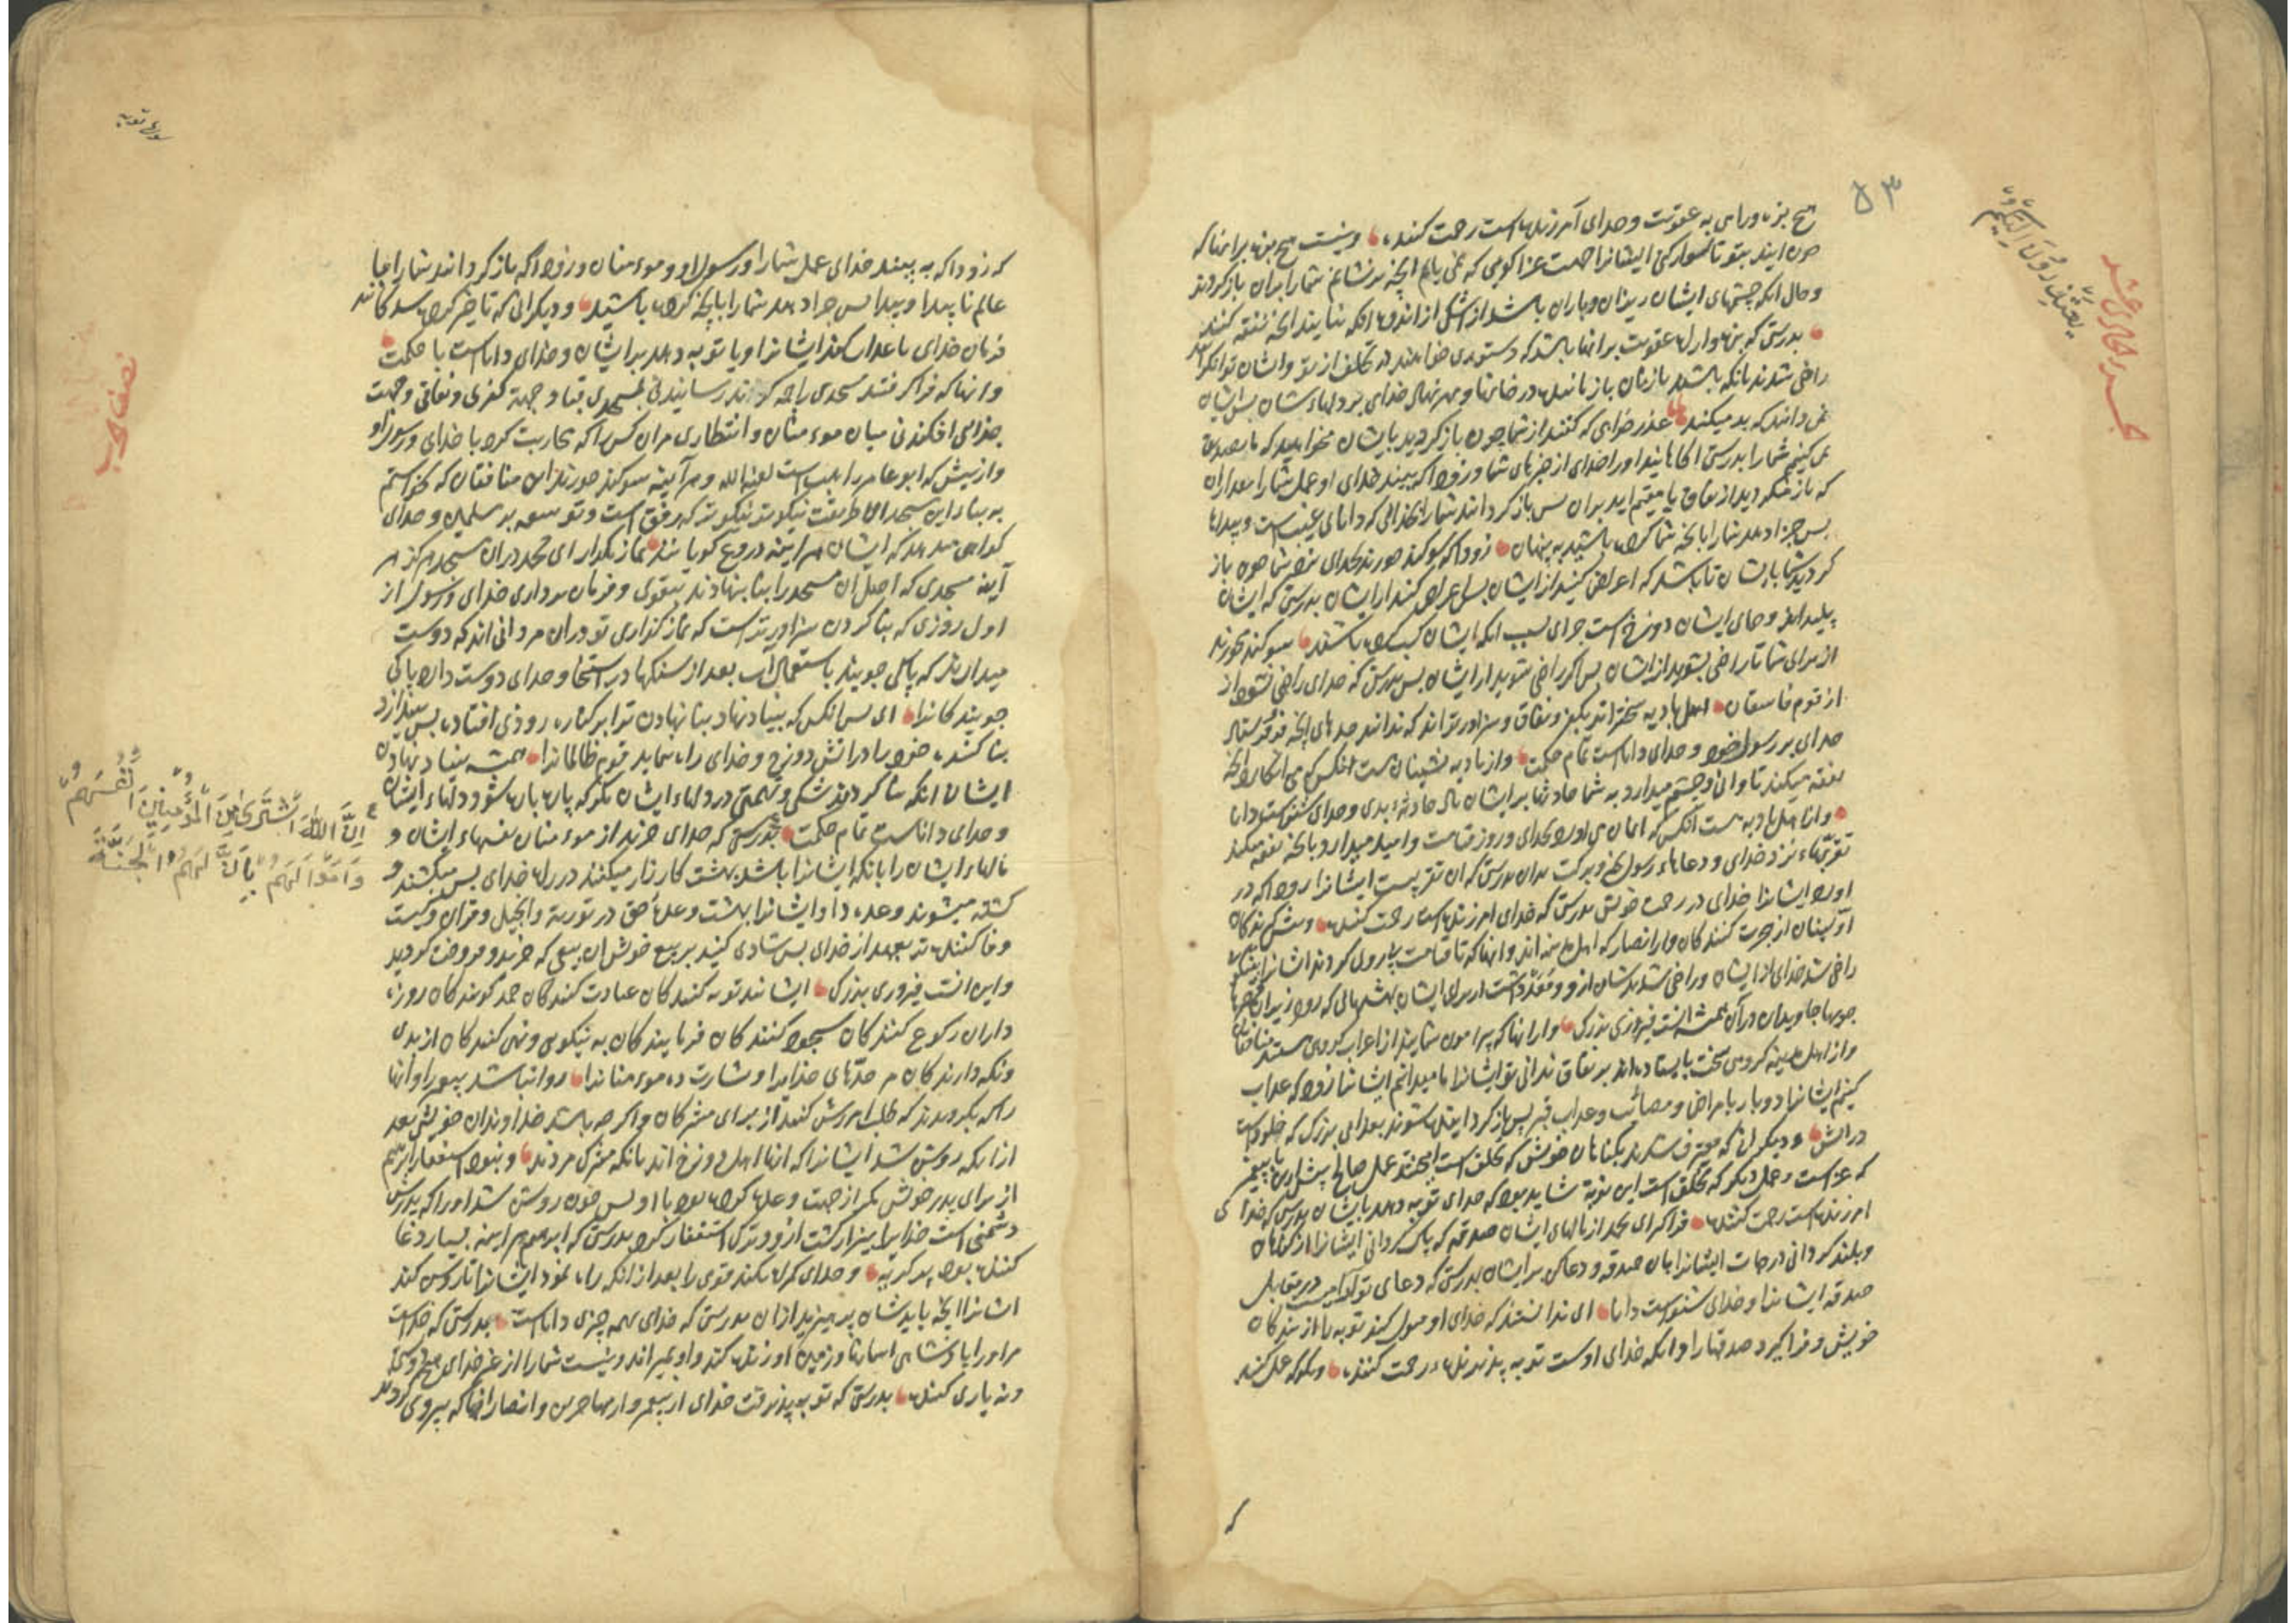 ۵۳
یعتذرون الیکم
جزو یازدهم شد
هیچ بزه وراهی به عقوبت وخدای آمرزنده است رحمت کننده ونیست هیچ بزه برانها که
چون ایند بتو تا سوار کنی ایشانرا جهت غزا کویی که نمی یابم انچه برنشانم شمارا بران بازکردند
وحال انکه چشمهای ایشان ریزان وباران باشد از اشک از اندوه انکه نیابند انچه نفقه کنند
بدرستی که بزه واراه عقوبت برانها باشد که دستوری خواهند در تخلف از تو وایشان توانکرانند
راضی شدند بانکه باشند بازنان بازمانده در خانها ومهر نهاد خدای بر دلهاء شان پس ایشان
نمی دانند که بد میکنند عذر خواهی کنند از شما چون باز کردید بایشان
نمی کنیم شمارا بدرستی اکاهانید اورا خدای از خبرهای شما وزود که بیند خدای او عمل شمارا
که باز میکردید از نفاق یا مقیم اید بران پس باز کردانند شمارا بخدایی که دانای غیب است وپیدا
پس جزا دهد شمارا بانچه شما کرده باشید به پنهان زودا که سوکند خورند بخدای برای شما چون باز
کردید شما بایشان تا باشد که اعراض کنید از ایشان پس اعراض کنید از ایشان بدرستی که ایشان
پلیدانند وجای ایشان دوزخ است جزای بسبب انکه ایشان کسب کرده باشند سوکند خورند
از برای شما تا راضی بشوید از ایشان پس اکر راضی شوید از ایشان پس بدرستی که خدای راضی نشود از
از قوم فاسقان اهل بادیه سخت تراند بکفر ونفاق وسزاورتراند که ندانند حدهای انچه فرو فرستاد
خدای بر رسول خود وخدای داناست تمام حکمت وازبادیه نشینان هست انکس که می انکارد انچه
نفقه میکند تاوانی وچشم میدارد به شما حادثها بر ایشان باد حادثه بدی وخدای شنوست دانا
وازاهل بادیه هست انکس که ایمان می اورد بخدای وروز قیامت وامید میدارد بانچه نفقه میکند
تقربهاء نزد خدای ودعاهاء رسول بخیر وبرکت بدان بدرستی که ان تقربیست ایشانرا زودا که در
اورد ایشانرا خدای در رحمت خویش بدرستی که خدای امرزنده است رحمت کننده وپیشی کیرندکان
اولینان از هجرت کنندکان وازانصار که اهل مدینه اند وانها که تا قیامت پیروی کردند ایشانرا بنیکویی
راضی شد خدای از ایشان وراضی شدند ایشان ازو ومعد داشت از برای ایشان بهشتهایی که رود زیران
جویها جاویدان دران همیشه انست فیروزی بزرک وازانها که پیرامون شمایند از اعراب کروهی هستند منافقان
وازاهل مدینه کروهی سخت بایستاده اند بر نفاق ندانی تو ایشانرا ما میدانیم ایشانرا زود که عذاب
کنیم ایشانرا دوبار بامراض ومصائب وعذاب قبر پس باز کردانیده شوند بعذابی بزرک که خلودست
در اتش ودیکران که معترف شدند بکناهان خویش که تخلف است امیختند عمل صالح پیش ازین با پیغمبر
که غزاست وعمل دیکر که تخلف است این نوبت شاید بود که خدای توبه دهد بایشان بدرستی که خدای
امرزنده است رحمت کننده فراکر ای محمد از مالهای ایشان صدقه که پاک کردانی ایشانرا از کناهان
وبلند کردانی درجات ایشانرا بان صدقه ودعاکن بر ایشان بدرستی که دعای تو ارامیست در مقابل
صدقه ایشانرا وخدای شنوست دانا ای ندانستند که خدای او قبول کند توبه را از بندکان
خویش وفراکیرد صدقها را وانکه خدای اوست توبه پذیرنده رحمت کننده وبکو که عمل کنید
که
سوره توبه
نصف حزب
که زودا که به بیند خدای عمل شمارا ورسول او وموءمنان وزودا که بازکردانند شمارا با
عالم ناپیدا وپیدا پس جزا دهد شمارا بانچه کرده باشید ودیکرانی که تاخیر کرده شدکانند
فرمان خدای یا عذاب کند ایشانرا ویا توبه دهد بر ایشان وخدای داناست با حکمت
وانها که فراکرفتند مسجدی را جهت کزند رسانیدنی بمسجدی قبا وجهت کفری ونفاقی وجهت
جدایی افکندنی میان موءمنان وانتظاری مران کس را که محاربت کرد با خدای ورسول او
وازپیش که ابو عامر راهب است لعنه الله وهرآینه سوکند خورند این منافقان که نخواستیم
به بناء این مسجد الا طریقت نیکوتر نیکوتر که رفق است وتوسعه بر مسلمین وخدای
کواهی میدهد که ایشان هراینه دروغ کویانند نماز مکذار ای محمد دران مسجد هرکز هر
آینه مسجدی که اصل ان مسجد را بنا بنهادند بتقوی وفرمان برداری خدای ورسول از
اول روزی که بنا کردن سزاورترست که نماز کزاری تو دران مردانی اند که دوست
میدارند که پاکی جویند باستعمال آب بعد از سنکها در استنجا وخدای دوست دارد پاکی
جویندکانرا ای پس انکس که بنیاد نهاد بنا نهادن ترا بر کناره رودی افتاده پس بیندازد
بنا کننده خود را در اتش دوزخ وخدای راه ننماید قوم ظالمانرا همیشه بنیاد نهادن
ایشان انکه بنا کردند شکی وتهمتی در دلهاء ایشان مکر که پاره پاره شود دلهاء ایشان
وخدای داناست تمام حکمت بدرستی که خدای خرید از موءمنان نفسهاء ایشان و
مالهاء ایشان را بانکه ایشانرا باشد بهشت کارزار میکنند در راه خدای پس میکشند و
کشته میشوند وعده داد ایشانرا بهشت وعده حق در توریة وانجیل وقران وکیست
وفا کننده تر بعهد از خدای پس شادی کنید ببیع خویش ان بیعی که خرید وفروخت کردید
واین انست فیروزی بزرک ایشانند توبه کنندکان عبادت کنندکان حمد کویندکان روزه
داران رکوع کنندکان سجود کنندکان فرمایندکان به نیکویی ونهی کنندکان از بدی
ونکه دارندکان مر حدهای خدایرا وبشارت ده موءمنانرا روا نباشد پیغمبر را وانها
را که بکرویدند که طلب امرزش کنند از برای مشرکان واکرچه باشند خداوندان خویشی بعد
ازانکه روشن شد ایشانرا که انها اهل دوزخ اند بانکه مشرک مردند ونبود استغفار ابرهیم
از برای پدر خویش مکر از جهت وعده کرده بود با او پس چون روشن شد اورا که پدرش
دشمنی است خدایرا بیزار کشت ازو وترک استغفار کرد بدرستی که ابرهیم هراینه بسیار دعا
کننده بود وخدای کمراه نکند قومی را بعد از انکه راه نمود ایشانرا تا روشن کند
ایشانرا انچه بایدشان پرهیزید ازان بدرستی که خدای بهمه چیزی داناست بدرستی که خداست
مراورا پادشاهی اسمانها وزمین او زنده کند واو بمیراند ونیست شمارا از غیر خدای هیچ دوستی
ونه یاری کننده بدرستی که توبه پذیرفت خدای از پیغمبر وازمهاجرین وانصار انها که پیروی کردند
إن الله اشتری من المؤمنین أنفسهم
وأموالهم بأن لهم الجنة